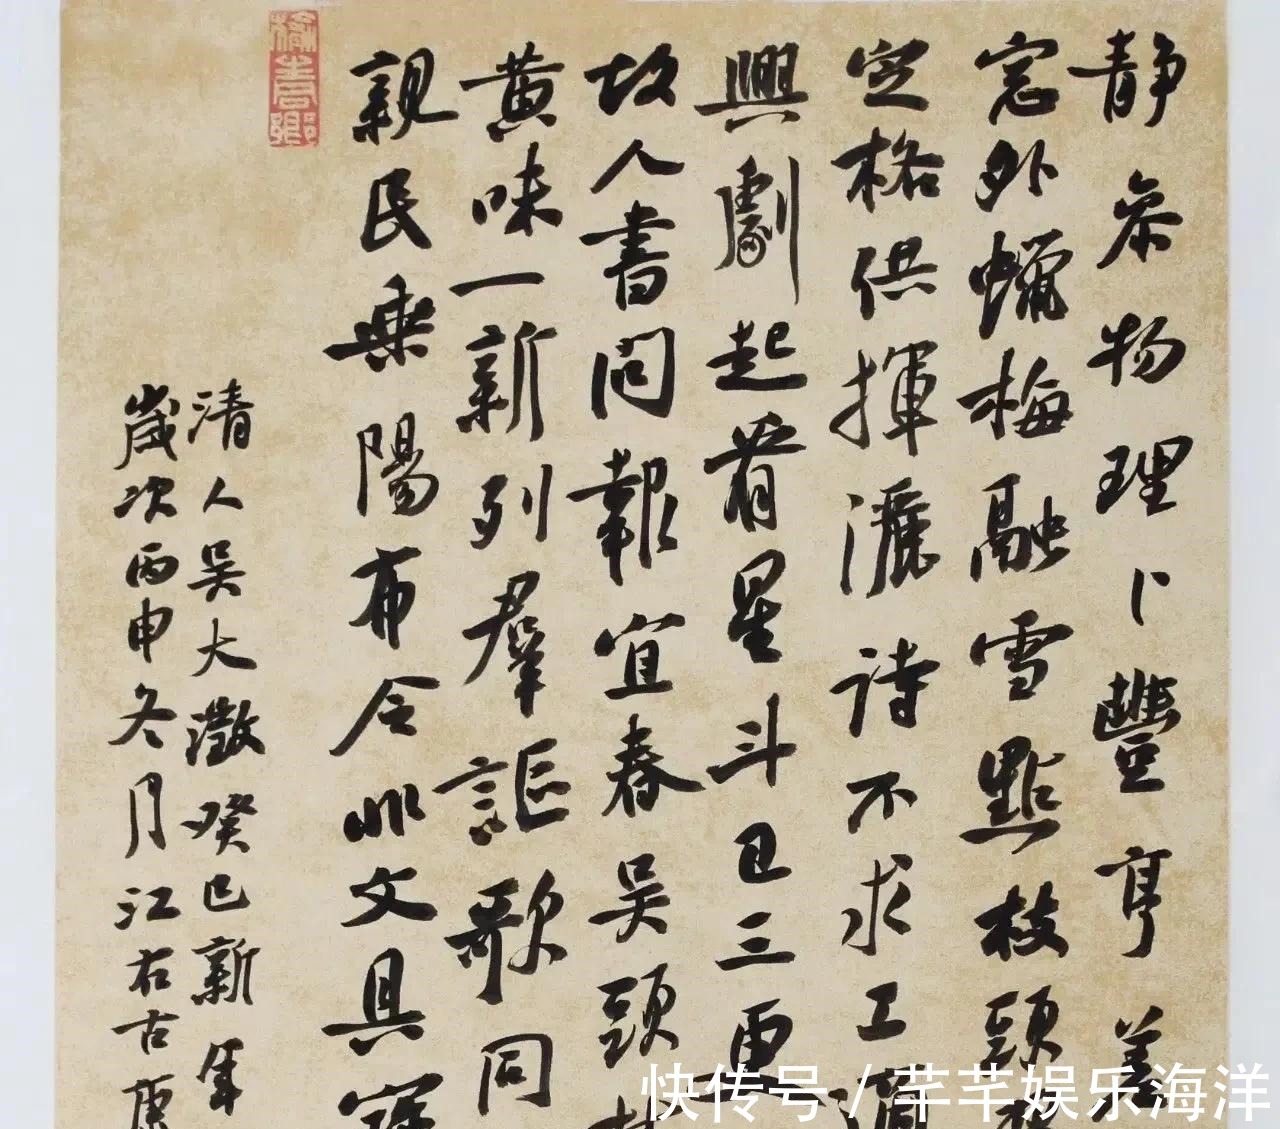 静参物理卜豐亨羔
窓外蠟梅融雪點枝頭
空格供揮灑詩不求工
興劇起看星斗已三更
故人書問報宜春吴頭
黄味一新列羣謳歌同
親民樂陽布令兆文具
清人吴大澂癸巳新年
歲次丙申冬月江右古
快传号 / 芊芊娱乐海洋